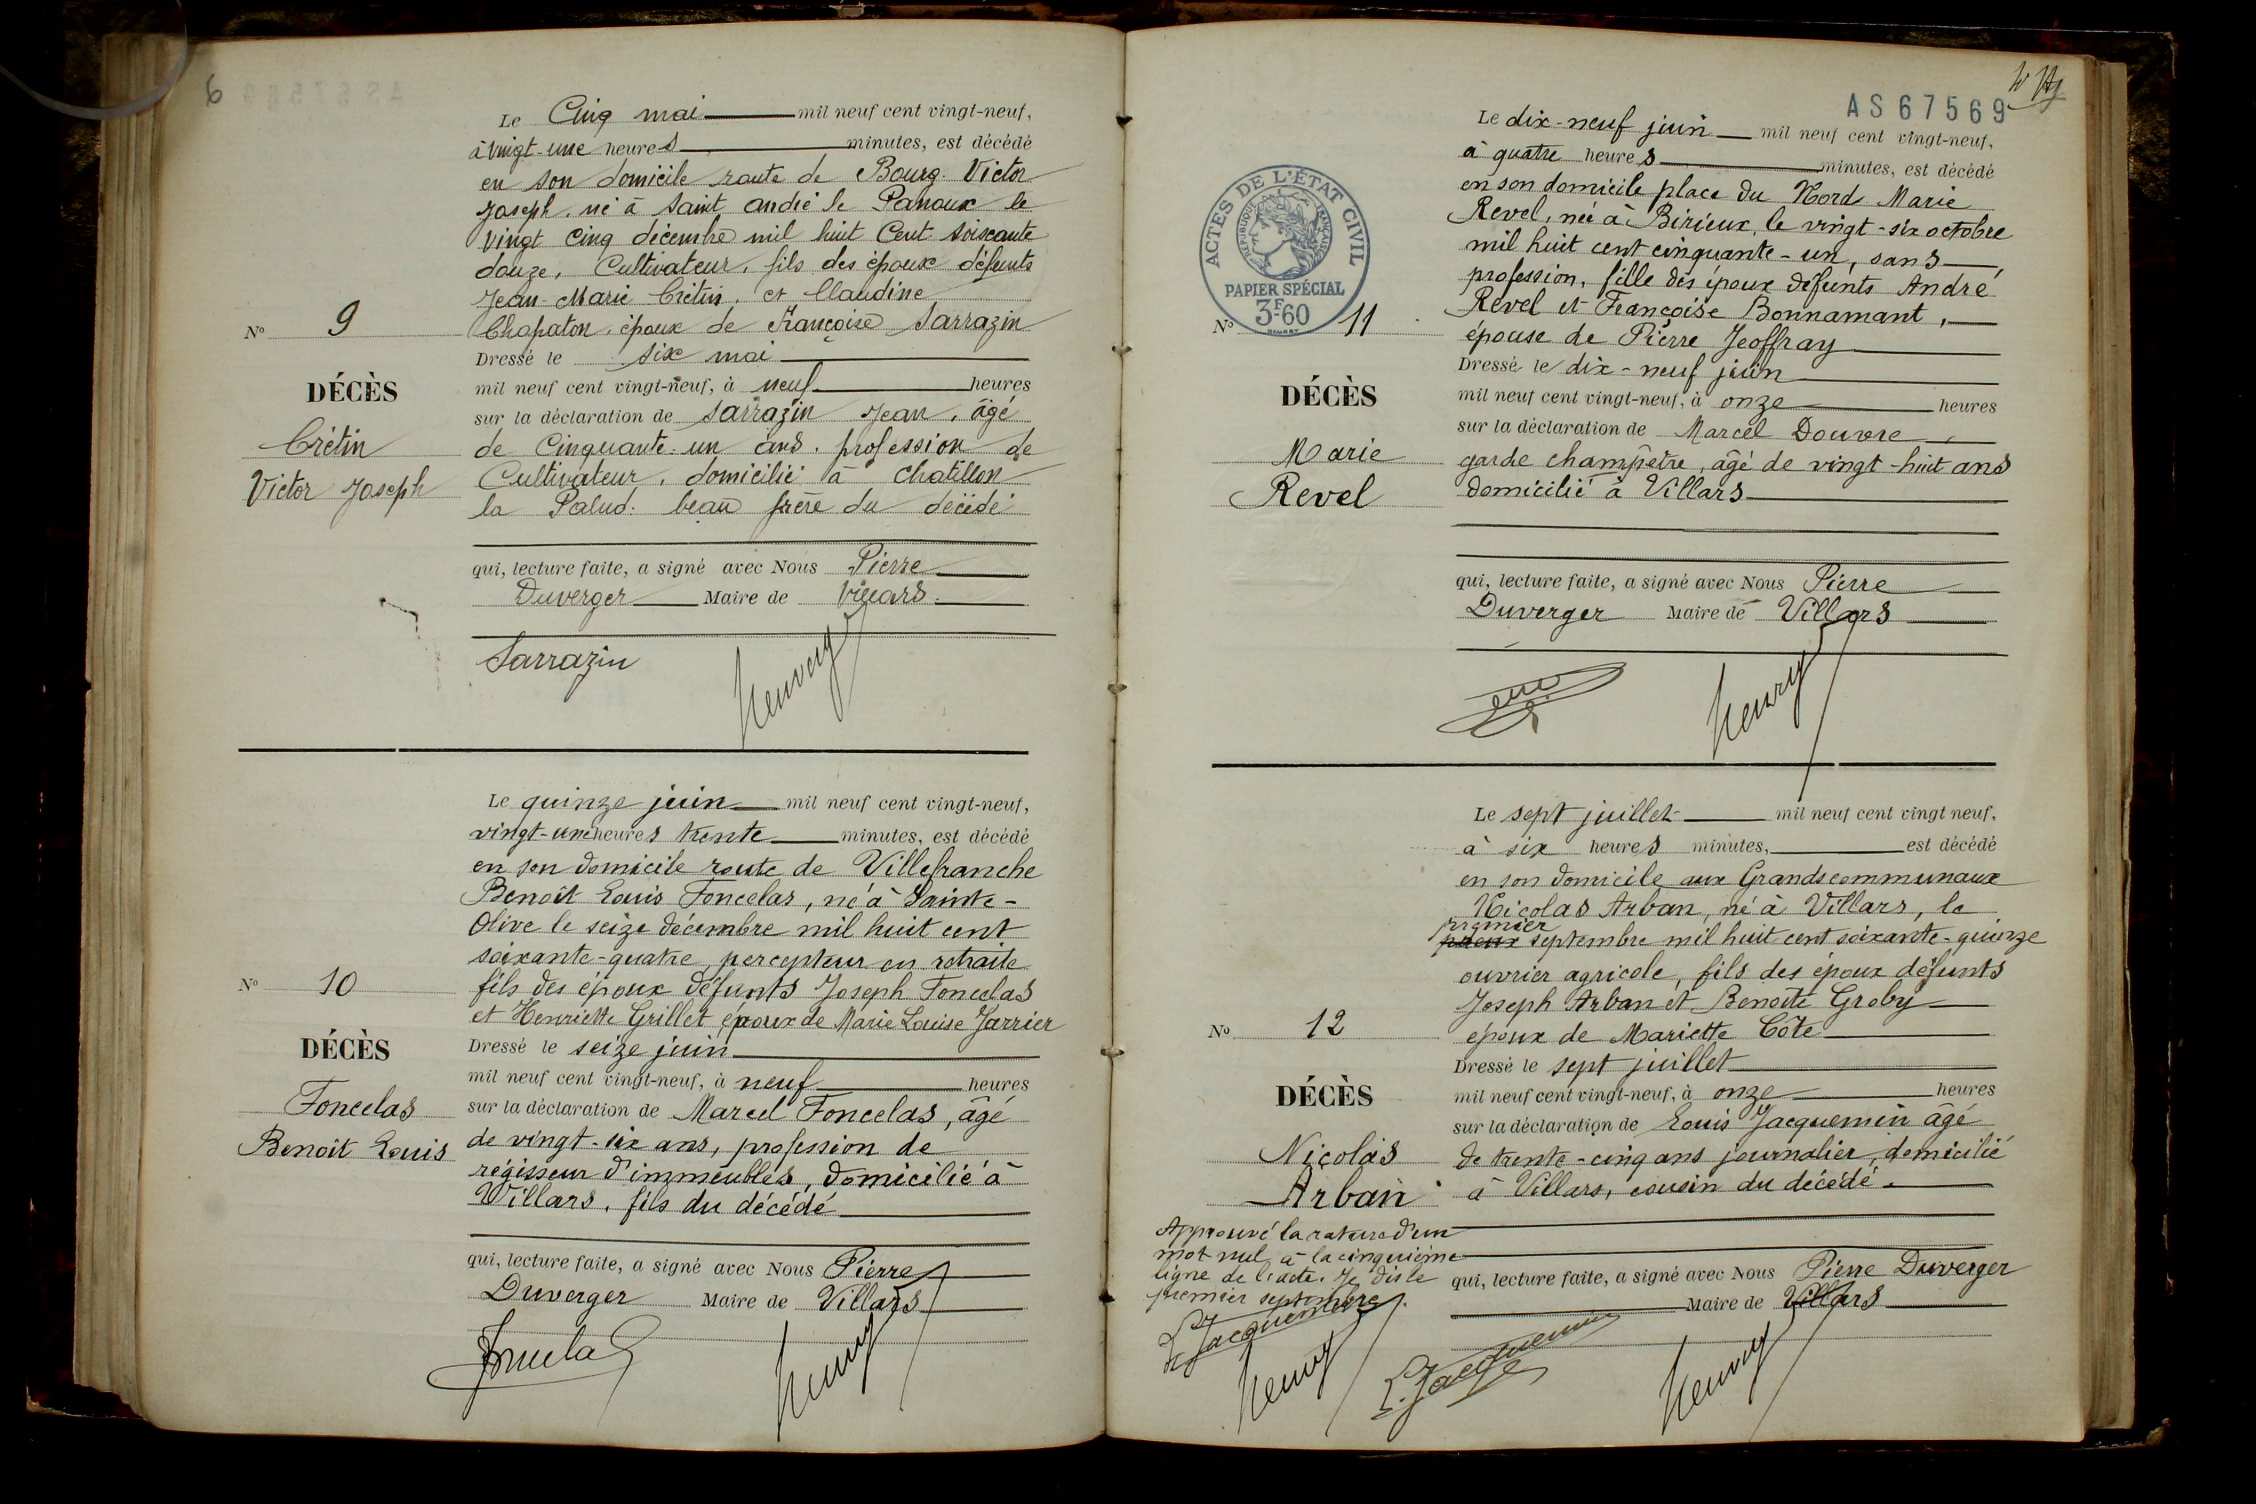 Le Cinq mai mil neuf cent vingt-neuf,
à vingt-une heures minutes, est décédé
en son domicile route de Bourg. Victor
Joseph. né à Saint andié le Panoux le
vingt cinq décembre mil huit Cent soixante
douze, Cultivateur, fils des époux défunts
Jean-Marie Crétin, et Claudine
Chapaton, époux de Françoise Sarrazin
No 9
Dressé le six mai
DÉCÈS
mil neuf cent vingt-neuf, à neuf heures
sur la déclaration de Sarrazin Jean, âgé
Crétin
de Cinquante-un ans. profession de
Victor Joseph
Cultivateur, domicilié à Chatillon
la Palud. beau frère du décédé
qui, lecture faite, a signé avec Nous Pierre
Duverger Maire de Villars.
Sarrazin
Le quinze juin mil neuf cent vingt-neuf,
vingt-une heures trente minutes, est décédé
en son domicile route de Villefranche
Benoît Louis Foncelas, né à Sainte-
Olive le seize décembre mil huit cent
soixante-quatre, percepteur en retraite
No 10
fils des époux défunts Joseph Foncelas
et Henriette Grillet époux de Marie Louise Jarrier
DÉCÈS
Dressé le seize juin
mil neuf cent vingt-neuf, à neuf heures
Foncelas
sur la déclaration de Marcel Foncelas, âgé
Benoît Louis
de vingt-six ans, profession de
régisseur d'immeubles, domicilié à
Villars, fils du décédé
qui, lecture faite, a signé avec Nous Pierre
Duverger Maire de Villars
AS 67569
Le dix-neuf juin mil neuf cent vingt-neuf,
à quatre heures minutes, est décédé
en son domicile place du Nord Marie
Revel, née à Birieux, le vingt-six octobre
mil huit cent cinquante-un, sans
profession, fille des époux défunts André
Revel et Françoise Bonnamant,
épouse de Pierre Jeoffray
ACTES DE L'ÉTAT CIVIL
RÉPUBLIQUE FRANÇAISE
PAPIER SPÉCIAL
3F60
No 11
Dressé le dix-neuf juin
DÉCÈS
mil neuf cent vingt-neuf, à onze heures
sur la déclaration de Marcel Douvre,
Marie
garde champêtre, âgé de vingt-huit ans
Revel
domicilié à Villars
qui, lecture faite, a signé avec Nous Pierre
Duverger Maire de Villars
Le sept juillet mil neuf cent vingt neuf,
à six heures minutes, est décédé
en son domicile aux Grands communaux
Nicolas Arban, né à Villars, le
premier
septembre mil huit cent soixante-quinze
ouvrier agricole, fils des époux défunts
Joseph Arban et Benoîte Groby
No 12
époux de Mariette Côte
Dressé le sept juillet
DÉCÈS
mil neuf cent vingt-neuf, à onze heures
sur la déclaration de Louis Jacquemin âgé
Nicolas
de trente-cinq ans journalier, domicilié
Arban
à Villars, cousin du décédé.
Approuvé la rature d'un
mot nul à la cinquième
ligne de l'acte. Je dis le
premier septembre.
qui, lecture faite, a signé avec Nous Pierre Duverger
Maire de Villars
L. Jacquemin
L. Jacquemin